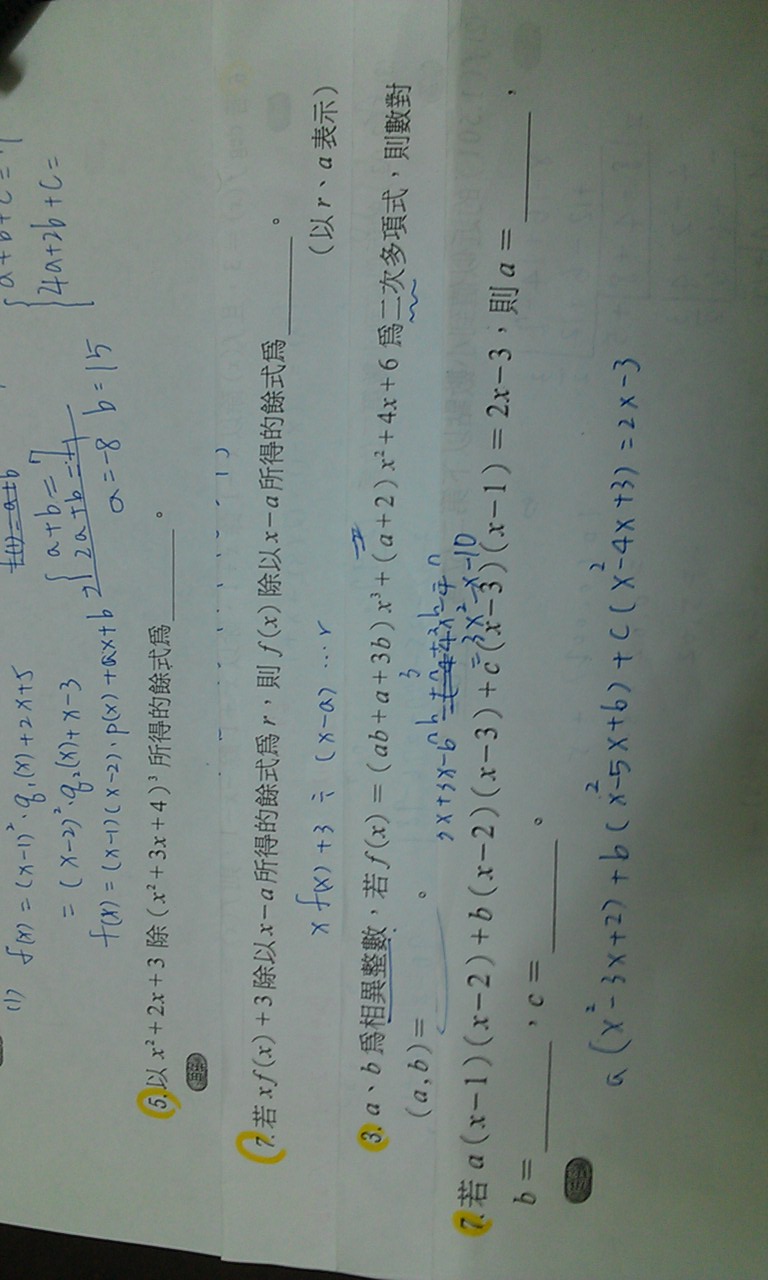 (1) f(x) = (x-1)²·q₁(x)+2x+5
= (x-2)²·q₂(x)+x-3
f(x) = (x-1)(x-2)·p(x)+ax+b
{ a+b=7
2a+b=-1
a=-8 b=15
{ a+b+c=7
4a+2b+c=
5.以 x²+2x+3 除 (x²+3x+4)³ 所得的餘式為______。
7.若 xf(x)+3 除以 x-a 所得的餘式為 r,則 f(x) 除以 x-a 所得的餘式為______。
(以 r、a 表示)
x f(x) + 3 ÷ (x-a) … r
3. a、b 為相異整數,若 f(x)=(ab+a+3b)x³+(a+2)x²+4x+6 為二次多項式,則數對
(a,b)=______。
=3x²-x-10
7.若 a(x-1)(x-2)+b(x-2)(x-3)+c(x-3)(x-1)=2x-3,則 a=______,
b=______,c=______。
a(x²-3x+2)+b(x²-5x+6)+c(x²-4x+3)=2x-3